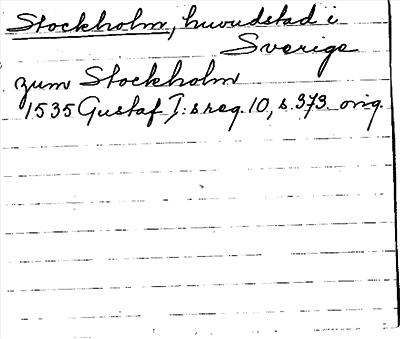 Stockholm, huvudstad i
Sverige
zum Stockholm
1535 Gustaf I:s reg. 10, s. 373. orig.